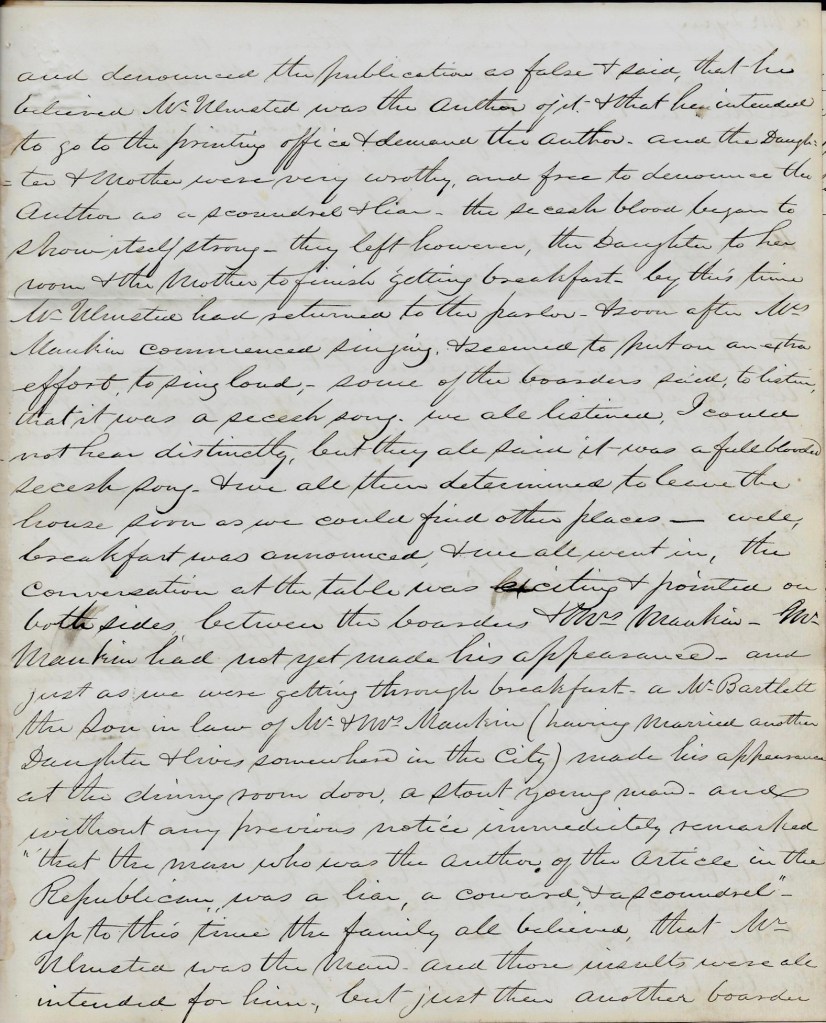 and denounced the publication as false & said, that he
believed Mr Ulmsted was the Author of it. & that he intended
to go to the printing office & demand the Author - and the Daugh-
-ter & Mother were very wrothy, and free to denounce the
Author as a scoundrel & liar - the secesh blood began to
show itself strong - they left however, the Daughter to her
room & the Mother to finish getting breakfast - by this time
Mr Ulmsted had returned to the parlor - & soon after Mrs
Mankin commenced singing, & seemed to put on an extra
effort, to sing loud, - some of the boarders said, to listen,
that it was a secesh song - we all listined, I could
not hear distinctly, but they all said it was a full blooded
secesh song - & we all then determined to leave the
house soon as we could find other places — well,
breakfast was announced, & we all went in, the
conversation at the table was exciting & pointed on
both sides, between the boarders & Mrs Mankin - Mr
Mankin had not yet made his appearance - and
just as we were getting through breakfast - a Mr Bartlett
the Son in law of Mr & Mrs Mankin (having Married another
Daughter & lives somewhere in the City) made his appearance
at the dining room door, a stout young man - and
without any previous notice immediately remarked
"that the man who was the Author of the Article in the
Republican, was a liar, a coward, & a scoundrel" -
up to this time the family all believed, that Mr
Ulmsted was the Man - and those insults were all
intended for him -, but just then another boarder